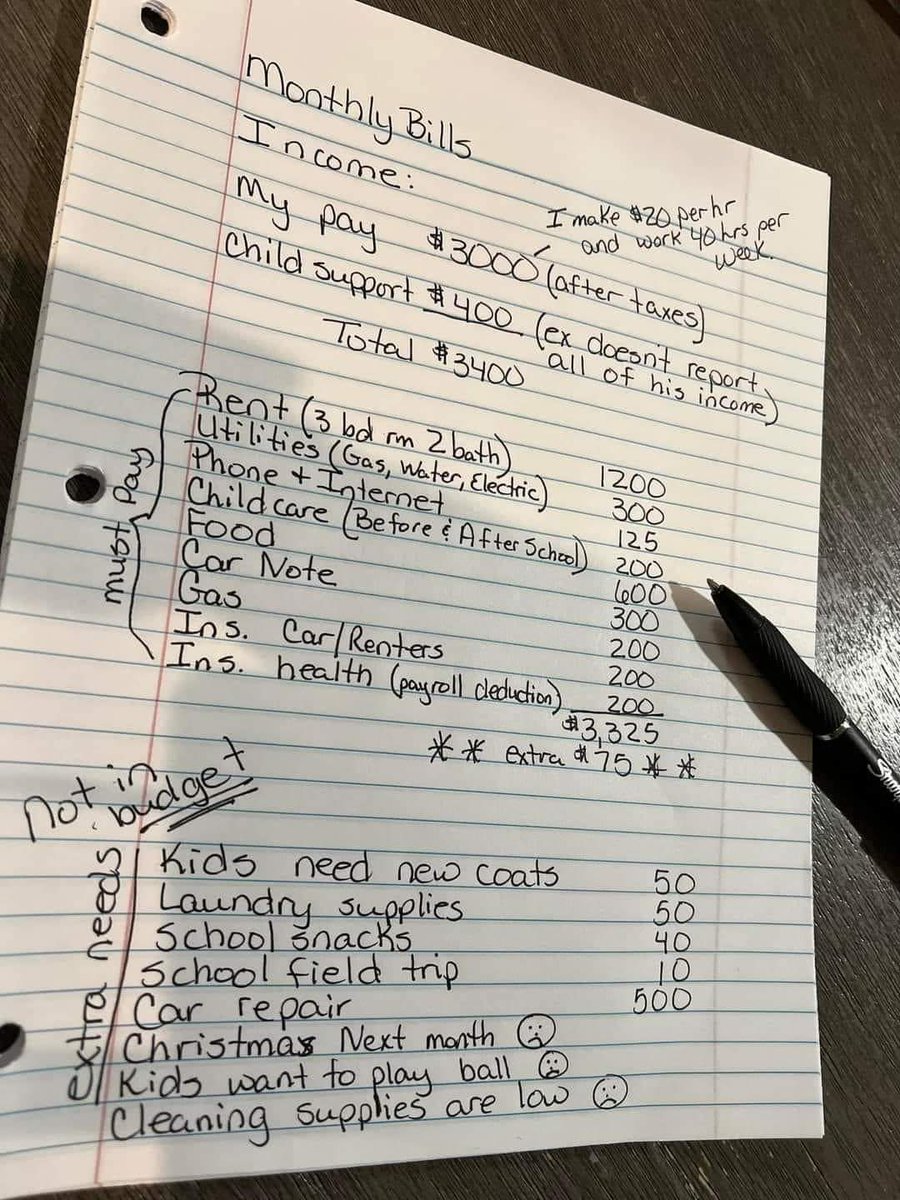 Monthly Bills
Income:
I make $20 per hr
and work 40 hrs per
week.
My pay $3000 (after taxes)
Child support $400 (ex doesn't report
all of his income)
Total $3400
must pay
Rent (3 bd rm 2 bath) 1200
Utilities (Gas, Water, Electric) 300
Phone + Internet 125
Childcare (Before & After School) 200
Food 600
Car Note 300
Gas 200
Ins. Car/Renters 200
Ins. health (payroll deduction) 200
$3,325
** extra $75 **
not in
budget
extra needs
Kids need new coats 50
Laundry supplies 50
School snacks 40
School field trip 10
Car repair 500
Christmas Next month ☹
Kids want to play ball ☹
Cleaning supplies are low ☹